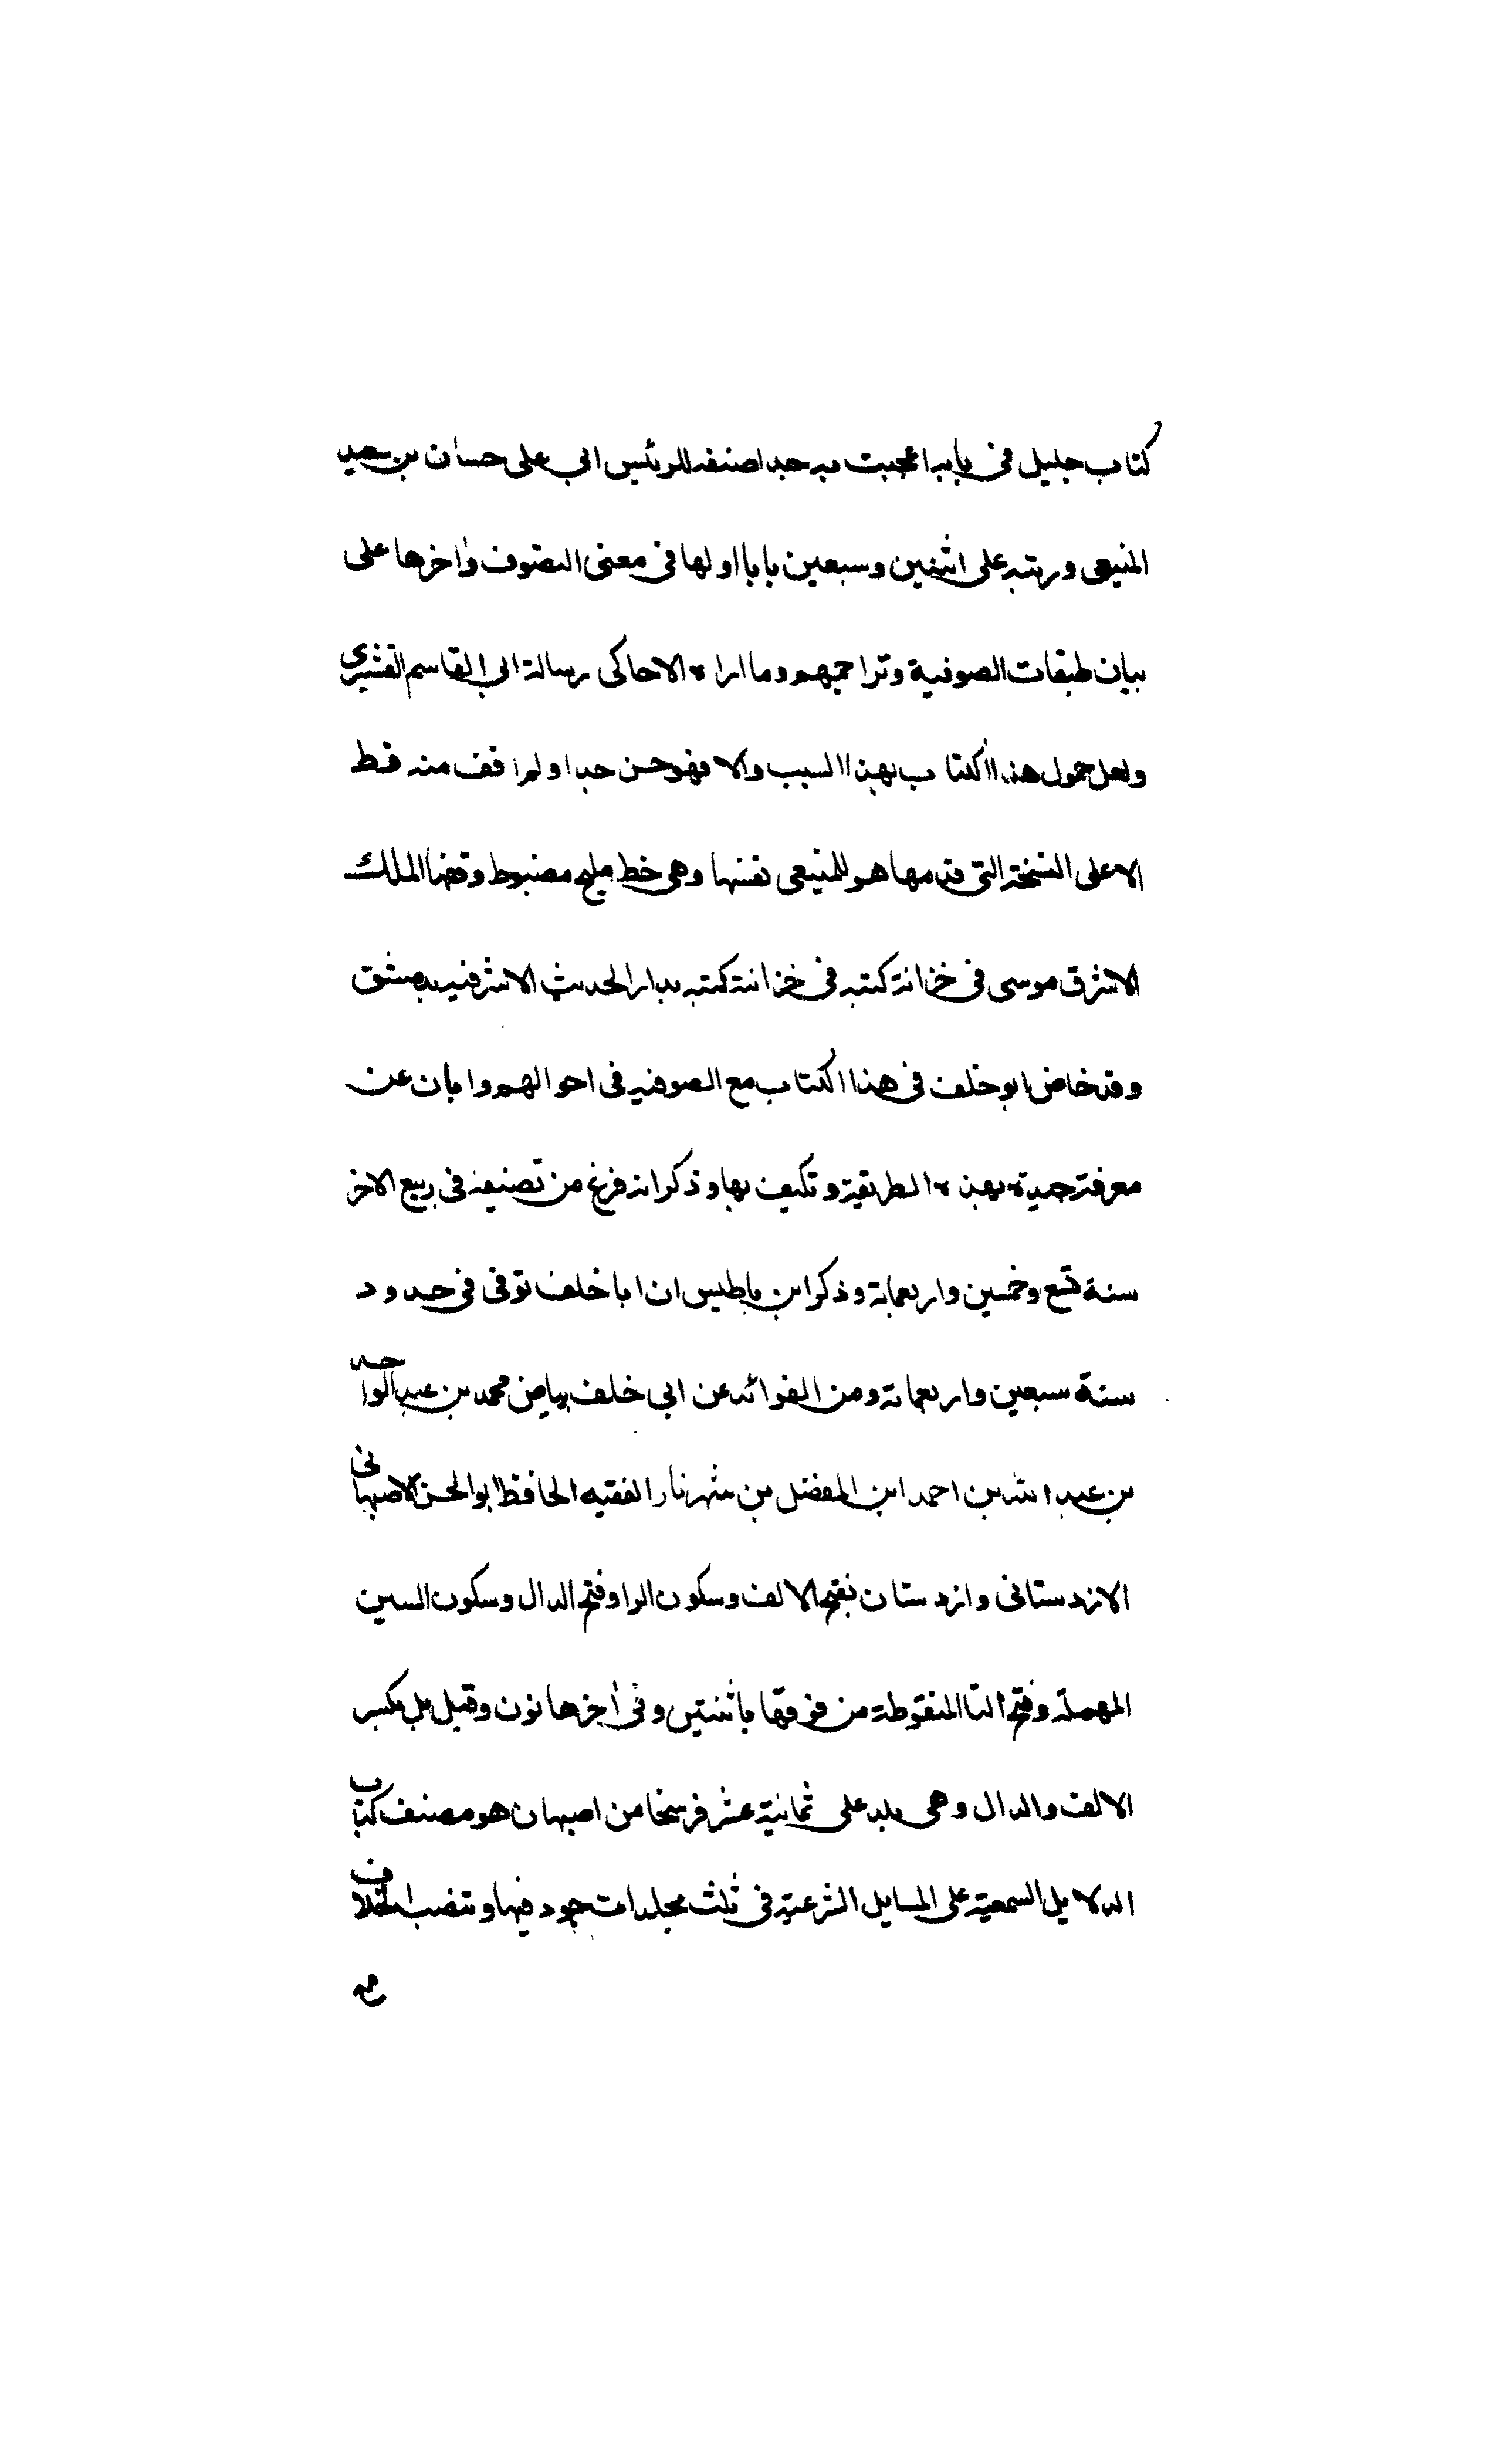 كتاب جليل فى بابه اعجبت به جدا صنفه للرئيس ابى على حسان بن سعيد
المنيعى ورتبه على اثنين وسبعين بابا اولها فى معنى التصوف واخرها على
بيان طبقات الصوفية وتراجمهم وما اراه الا حاكى رسالة ابى القاسم القشيرى
ولعل خمول هذا الكتاب بهذا السبب والا فهو حسن جدا ولم اقف منه قط
الا على النسخة التى قدمها هو للمنيعى نفسها وهى خط مليح مضبوط وقفها الملك
الاشرف موسى فى خزانة كتبه فى خزانة كتبه بدار الحديث الاشرفيه بدمشق
وقد خاض ابو خلف فى هذا الكتاب مع الصوفيه فى احوالهم وابان عن
معرفة جيدة بهذه الطريقة وتكيف بها وذكر انه فرغ من تصنيفه فى ربيع الاخر
سنة تسع وخمسين واربعماية وذكر ابن باطيس ان ابا خلف توفى فى حدود
سنة سبعين واربعماية ومن الفوائد عن ابى خلف بياض محمد بن عبد الواحد
بن عبد الله بن احمد ابن المفضل بن شهرنار الفقيه الحافظ ابو الحسن الاصبهانى
الازدستانى وازدستان بفتح الالف وسكون الرا وفتح الدال وسكون السين
المهملة وفتح التا المنقوطة من فوقها باثنتين وفى اخرها نون وقيل بل بكسر
الالف والدال وهى بلد على ثمانية عشر فرسخا من اصبهان هو مصنف كتاب
الدلايل السمعية على المسايل الشرعية فى ثلث مجلدات جود فيها وتنصب الخلاف